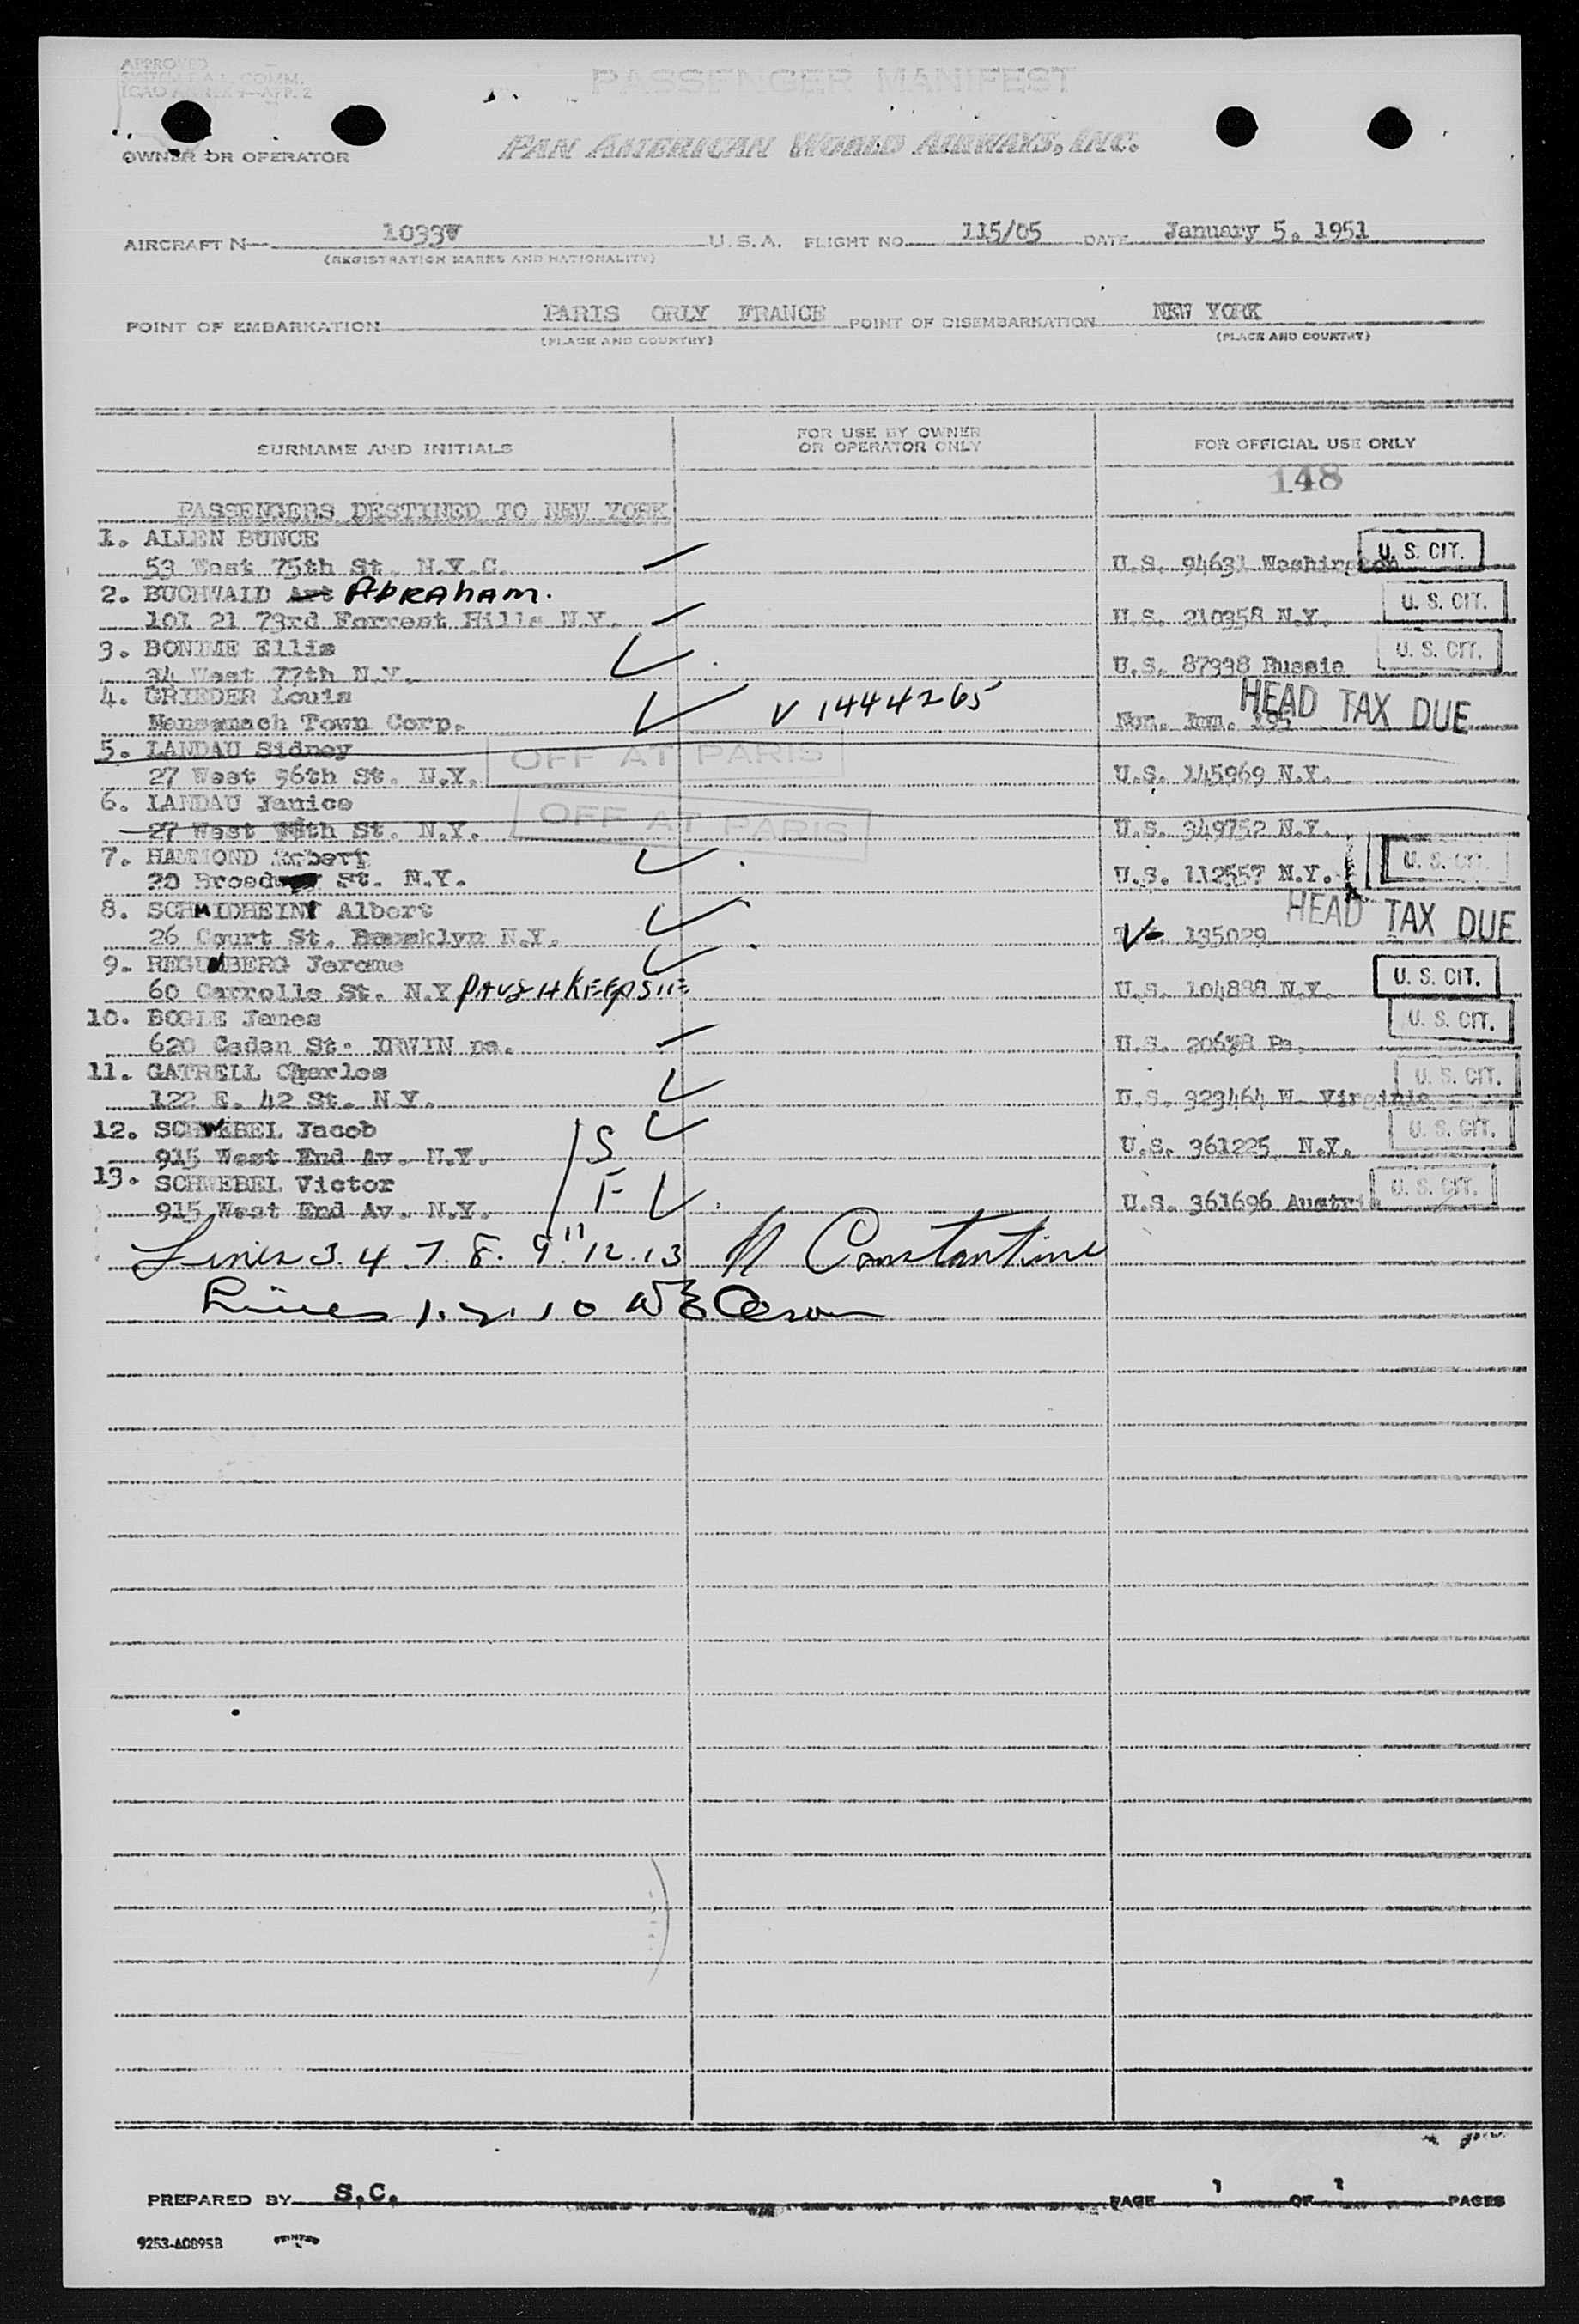 APPROVED
SYSTEM F.A.L. COMM.
ICAO ANNEX 9—APP. 2
PASSENGER MANIFEST
OWNER OR OPERATOR PAN AMERICAN WORLD AIRWAYS, INC.
AIRCRAFT N— 1033V U.S.A. FLIGHT NO. 115/05 DATE January 5, 1951
(REGISTRATION MARKS AND NATIONALITY)
POINT OF EMBARKATION PARIS ORLY FRANCE POINT OF DISEMBARKATION NEW YORK
(PLACE AND COUNTRY) (PLACE AND COUNTRY)
SURNAME AND INITIALS FOR USE BY OWNER OR OPERATOR ONLY FOR OFFICIAL USE ONLY
148
PASSENGERS DESTINED TO NEW YORK
1. ALLEN BUNCE
53 East 75th St. N.Y.C. U.S. 94631 Washington U. S. CIT.
2. BUCHWALD Art ABRAHAM.
101 21 73rd Forrest Hills N.Y. U.S. 210358 N.Y. U. S. CIT.
3. BONIME Ellis
34 West 77th N.Y. U.S. 87338 Russia U. S. CIT.
4. GRIEDER Louis
Town Corp. V 1444265 Non. Imm. 195 HEAD TAX DUE
5. LANDAU Sidney
27 West 96th St. N.Y. OFF AT PARIS U.S. 145969 N.Y.
6. LANDAU Janice
27 West th St. N.Y. OFF AT PARIS U.S. 349752 N.Y.
7. HAMMOND Robert
20 Broad St. N.Y. U.S. 112557 N.Y. U. S. CIT.
8. SCHMIDHEINY Albert
26 Court St. Brooklyn N.Y. V 135029 HEAD TAX DUE
9. Jerome
60 Carrolls St. N.Y. PAUGHKEEPSIE U.S. 104888 N.Y. U. S. CIT.
10. BOGLE James
620 Caden St. IRWIN pa. U.S. Pa. U. S. CIT.
11. GATRELL Charles
122 E. 42 St. N.Y. U.S. 323464 W. Virginia U. S. CIT.
12. SCHWEBEL Jacob
915 West End Av. N.Y. S U.S. 361225 N.Y. U. S. CIT.
13. SCHWEBEL Victor
915 West End Av. N.Y. F U.S. 361696 Austria U. S. CIT.
Lines 3. 4. 7. 8. 9. 11 12. 13 Constantine
Lines 1. 2. 10
PREPARED BY S.C. PAGE 1 OF 1 PAGES
9253-A0895B PRINTED